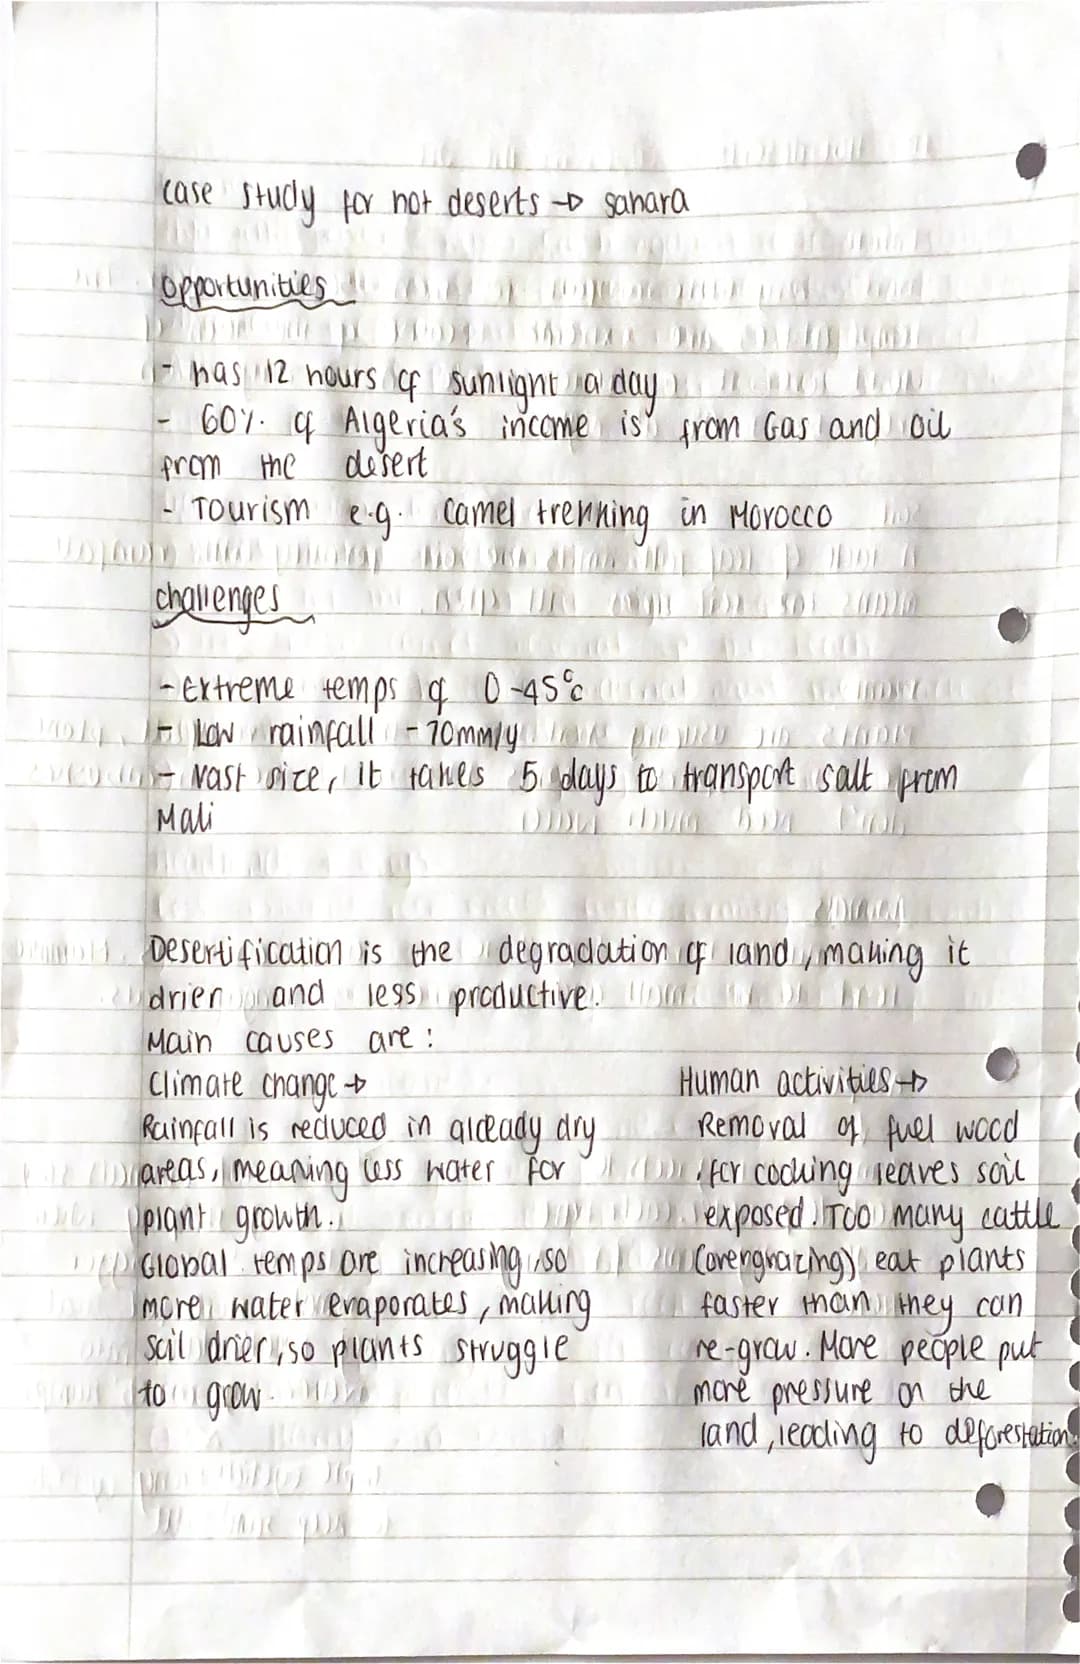 case study for hot deserts → sahara
opportunities
- has 12 hours of sunlight a day
- 60% of Algeria's income is from Gas and oil
from the desert
- Tourism e.g. camel trekking in Morocco
challenges
- Extreme temps of 0-45°c
- Low rainfall - 70mm/y
- Vast size, it takes 5 days to transport salt from
Mali
Desertification is the degradation of land, making it
drier and less productive.
Main causes are:
Climate change →
Rainfall is reduced in already dry
areas, meaning less water for
plant growth.
Global temps are increasing, so
more water evaporates, making
soil drier, so plants struggle
to grow.
Human activities →
Removal of fuel wood
for cooking leaves soil
exposed. Too many cattle
(overgrazing) eat plants
faster than they can
re-grow. More people put
more pressure on the
land, leading to deforestation.